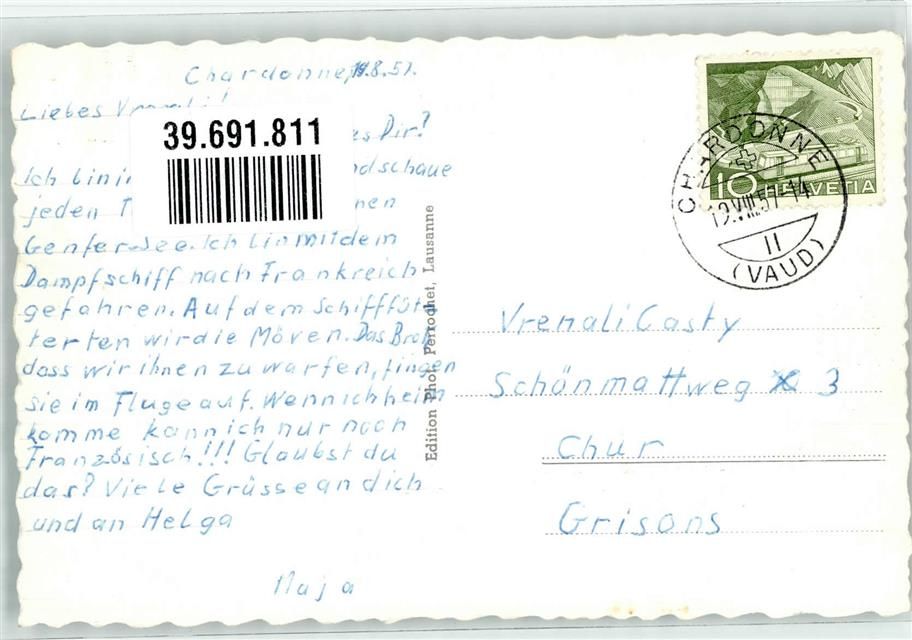 Chardonne, 8.51.
Liebes
39.691.811
es Dir?
Ich bin in ndschaue
jeden nen
Genfersee. Ich bin mit dem
Dampfschiff nach Frankreich
gefahren. Auf dem Schiff füt
terten wir die Möven. Das Brot
dass wir ihnen zu warfen, fingen
sie im Fluge auf. Wenn ich heim
komme kann ich nur noch
Französisch!!! Glaubst du
das? Viele Grüsse an dich
und an Helga
Maja
Edition Phot. Perrochet, Lausanne
10 HELVETIA
CHARDONNE
19.VIII.51-14
II
(VAUD)
Vrenali Casty
Schönmattweg 3
Chur
Grisons